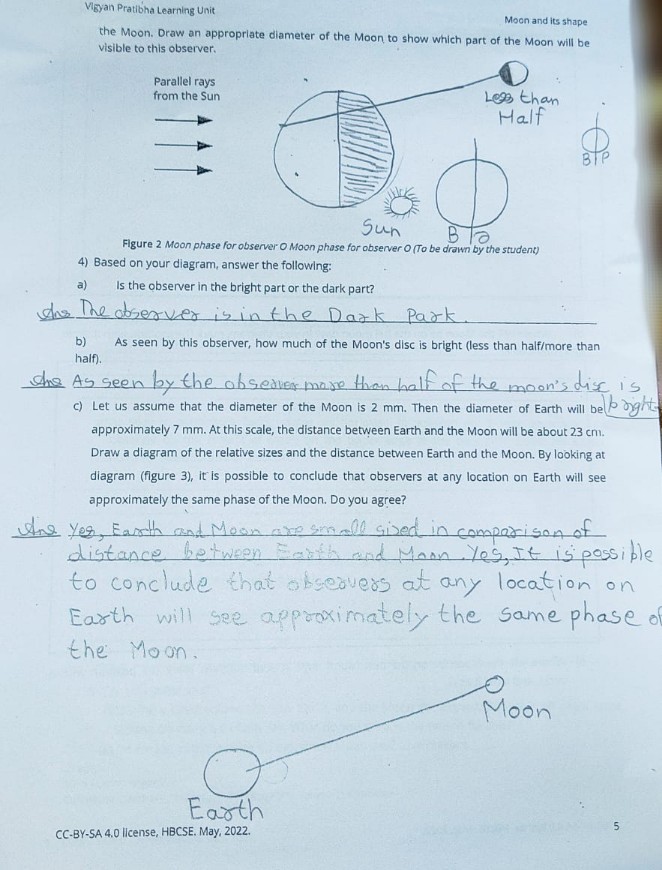 Vigyan Pratibha Learning Unit
Moon and its shape
the Moon. Draw an appropriate diameter of the Moon to show which part of the Moon will be
visible to this observer.
Parallel rays
from the Sun
Less than
Half
B P
Sun
B
Figure 2 Moon phase for observer O Moon phase for observer O (To be drawn by the student)
4) Based on your diagram, answer the following:
a) Is the observer in the bright part or the dark part?
Ans The observer is in the Dark Park.
b) As seen by this observer, how much of the Moon's disc is bright (less than half/more than
half).
Ans As seen by the observer more than half of the moon's disc is
bright
c) Let us assume that the diameter of the Moon is 2 mm. Then the diameter of Earth will be
approximately 7 mm. At this scale, the distance between Earth and the Moon will be about 23 cm.
Draw a diagram of the relative sizes and the distance between Earth and the Moon. By looking at
diagram (figure 3), it is possible to conclude that observers at any location on Earth will see
approximately the same phase of the Moon. Do you agree?
Ans Yes, Earth and Moon are small sized in comparison of
distance between Earth and Moon. Yes, It is possible
to conclude that observers at any location on
Earth will see approximately the same phase of
the Moon.
Moon
Earth
CC-BY-SA 4.0 license, HBCSE. May, 2022.
5